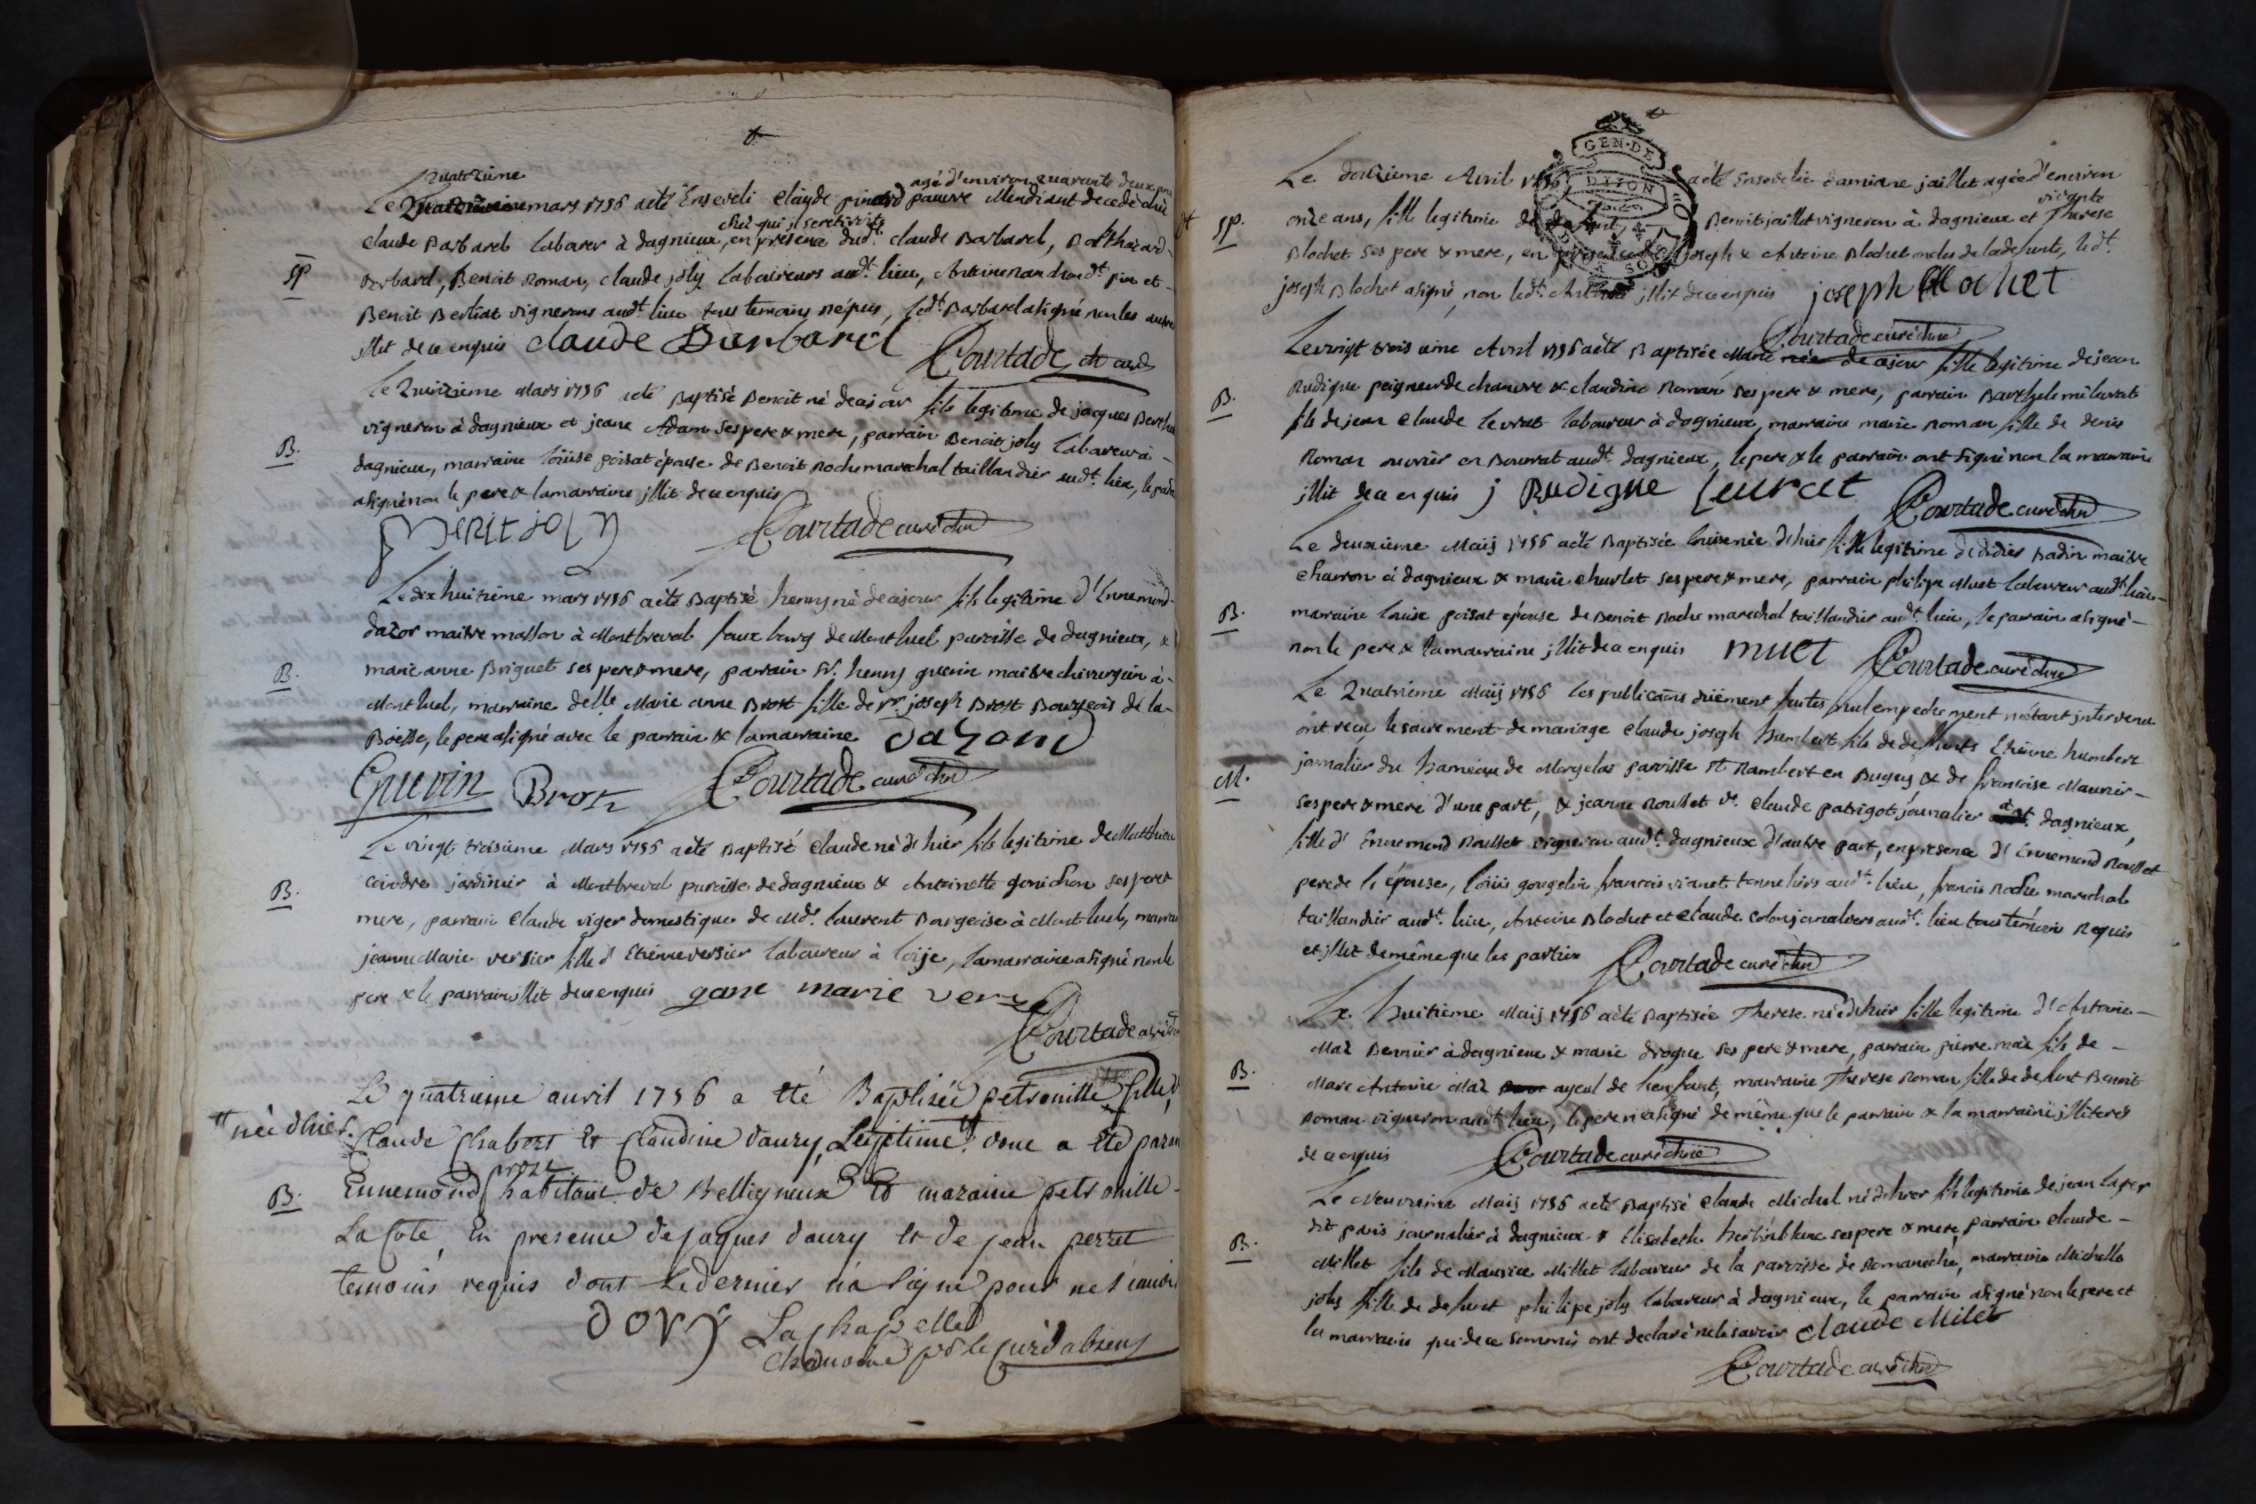 quatrzieme
agé d'environ quarante deux ans
Le mars 1756 a eté Enseveli Claude pinard pauvre Mendiant decedé chez
chez qui il seretiroit
Claude Barbarel labourer à dagnieux, en presence dud.t claude Barbarel, Balthazard
sp
Barbarel, Benoit Roman, claude joly laboureurs aud.t lieu, Antoine et
Benoit Berliat vignerons aud.t lieu tous temoins réquis, led.t Barbarel a signé non les autres
illit. de ce enquis claude Barbarel Courtade ch curé
Le Quinzieme Mars 1756 a eté Baptisé Benoit né de ce jour fils legitime de jacques
vigneron à dagnieux et jeane Adam ses pere & mere, parrain Benoit joly laboureur à
B.
dagnieux, marraine loüise poisat épouse de Benoit Roche marechal taillandier aud.t lieu, le
a signé non le pere & la marraine illit. de ce enquis
Benit joly Courtade curé chne
Le dix huitieme mars 1756 a eté Baptisé henry né de ce jour fils legitime d'Ennemond
dazor maitre masson à Montbreval faux bourg de Montluel paroisse de dagnieux, &
B.
marie anne Briguet ses pere & mere, parrain Sr. henry guerin maitre chirurgien à
Montluel, marraine delle Marie anne Brost fille de Sr. joseph Brost Bourgeois de la
Boisse, le pere a signé avec le parrain & la marraine
Guerin Brost Courtade curé chne
Le vingt troisieme Mars 1756 a eté Baptisé Claude né d'hier fils legitime de Matthieu
coindre jardinier à Montbreval paroisse de dagnieux & Antoinette gonichon ses pere &
B.
mere, parrain Claude viger domestique de Mde laurent Bourgeoise à Montluel, marraine
jeanne Marie versier fille d'Etienne versier laboureur à loije, la marraine a signé non le
pere & le parrain illit de ce enquis gane marie
Courtade curé
Le quatrieme avril 1756 a eté Baptisée petronille fille d
née d'hier
Claude Chabert et Claudine daury, Legitime a eté parain
Ennemond habitant de Belligneux et maraine petronille
B.
La Cote, En presence de jaques daury et de jean perret
temoins requis dont le dernier n'a signé pour ne sçavoir
dory La Chapelle
chanoine pr le curé absent
Le Avril 1756 a eté Ensevelie damiane jaillet agée d'environ
vivante
sp.
onze ans, fille legitime de Benoit jaillet vigneron à dagnieux et Therese
GEN. DE DIJON
Blochet ses pere & mere, en presence de joseph & Antoine Blochet oncles de la defunte, led.t
joseph Blochet a signé, non led.t Antoine illit. de ce enquis joseph Blochet
Courtade curé chne
Le vingt trois ieme Avril 1756 a eté Baptisée Marie née de ce jour fille legitime de jean
Rudigue peigneur de chanvre & claudine Roman ses pere & mere, parrain Barthelemi levrat
B.
fils de jean Claude levrat laboureur à dagnieux, marraine marie Roman fille de denis
Roman ouvrier en Bourrat aud.t dagnieux, le pere & le parrain ont signé non la marraine
illit de ce enquis j Rudigue Leurat Courtade curé chne
Le deuxieme Maij 1756 a eté Baptisée loüise née d'hier fille legitime de didier badin maitre
charron à dagnieux & marie churlet ses pere & mere, parrain philipe Muet laboureur aud.t lieu
B.
marraine loüise poisat épouse de Benoit Roche marechal taillandier aud.t lieu, le parrain a signé
non le pere & la marraine illit de ce enquis muet Courtade curé chne
Le Quatrieme Maij 1756 les publicaōns düement faites, nul empechement n'étant intervenu
ont reçu le sacrement de mariage Claude joseph humbert fils de defunts Etienne humbert
M.
journalier du hameau de Morgelas paroisse St Rambert en Bugey & de francoise Maunier
ses pere & mere d'une part, & jeanne Rousset ve. Claude patrigot journalier à dagnieux,
fille d'Ennemond Rousset vigneron aud.t dagnieux d'autre part, en presence d'Ennemond Rousset
pere de l'épouse, loüis gougelin, francois vianet tonneliers aud.t lieu, francois Roche marechal
taillandier aud.t lieu, Antoine Blochet et Claude Colon journaliers aud.t lieu tous temoins Requis
et illit de même que les parties Courtade curé chne
Le huitieme Maij 1756 a eté Baptisée Therese née d'hier fille legitime d'Antoine
Maz à dagnieux & marie drogue ses pere & mere, parrain pierre maz fils de
B.
Marc Antoine Maz ayeul de l'enfant, marraine Therese Roman fille de defunt Benoit
Roman vigneron aud.t lieu, le pere n'a signé de même que le parrain & la marraine illiterés
de ce enquis Courtade curé chne
Le Neuvieme Maij 1756 a eté Baptisé Claude Michel né d'hier fils legitime de jean
dit paris journalier à dagnieux & Elisabeth ses pere & mere, parrain Claude
B.
Millet fils de Maurice Millet laboureur de la paroisse de Romaneche, marraine Michelle
joly fille de defunt philipe joly laboureur à dagnieux, le parrain a signé non le pere et
la marraine qui de ce sommés ont declaré ne le savoir Claude Milet
Courtade curé chne